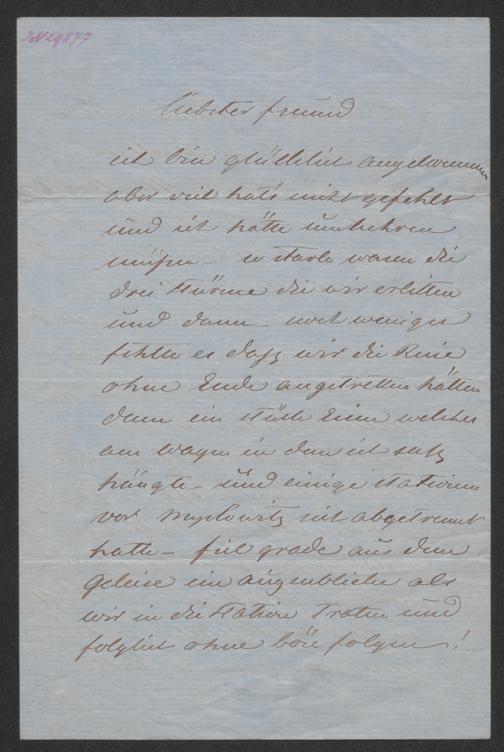 IN 29877
liebster freund
ich bin glücklich angekommen
aber viel hats nicht gefehlt
und ich hätte umkehren
müssen – so stark waren die
drei stürme die wir erlitten
und dann – noch weniger
fehlte es dass wir die Reise
ohne Ende angetretten hätten
denn ein stück Eisen welches
am wagen in dem ich sass
hängte – und einige stationen
vor Myslowitz sich abgetrennt
hatte – fiel grade aus dem
geleise im augenblicke als
wir in die station traten und
folglich ohne böse folgen!